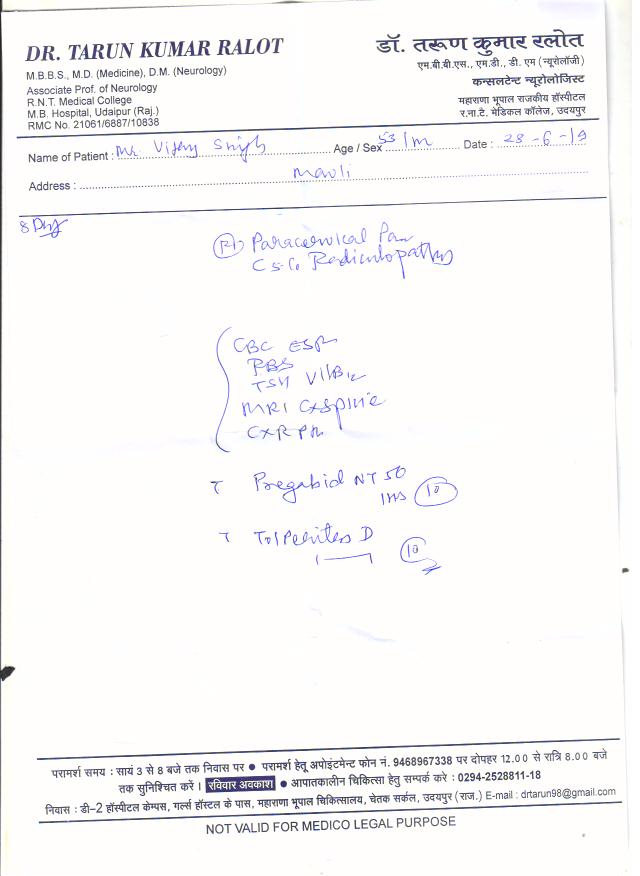 DR. TARUN KUMAR RALOT
M.B.B.S., M.D. (Medicine), D.M. (Neurology)
Associate Prof. of Neurology
R.N.T. Medical College
M.B. Hospital, Udaipur (Raj.)
RMC No. 21061/6887/10838
डॉ. तरूण कुमार रलोत
एम.बी.बी.एस., एम.डी., डी. एम (न्यूरोलॉजी)
कन्सलटेन्ट न्यूरोलोजिस्ट
महाराणा भूपाल राजकीय हॉस्पीटल
र.ना.टे. मेडिकल कॉलेज, उदयपुर
Name of Patient : Mr Vijay Singh Age / Sex 53/m Date : 28-6-19
Address : Mavli
8 Day
Rt Paracervical Pain
C5-C6 Radiculopathy
CBC ESR
RBS
TSH Vit B12
MRI CxSpine
CXR PA
T Pregabid NT 50
1HS 10
T Tolperitas D
10
परामर्श समय : सायं 3 से 8 बजे तक निवास पर ● परामर्श हेतू अपोइंटमेन्ट फोन नं. 9468967338 पर दोपहर 12.00 से रात्रि 8.00 बजे
तक सुनिश्चित करें । रविवार अवकाश ● आपातकालीन चिकित्सा हेतु सम्पर्क करे : 0294-2528811-18
निवास : डी-2 हॉस्पीटल केम्पस, गर्ल्स हॉस्टल के पास, महाराणा भूपाल चिकित्सालय, चेतक सर्कल, उदयपुर (राज.) E-mail : drtarun98@gmail.com
NOT VALID FOR MEDICO LEGAL PURPOSE